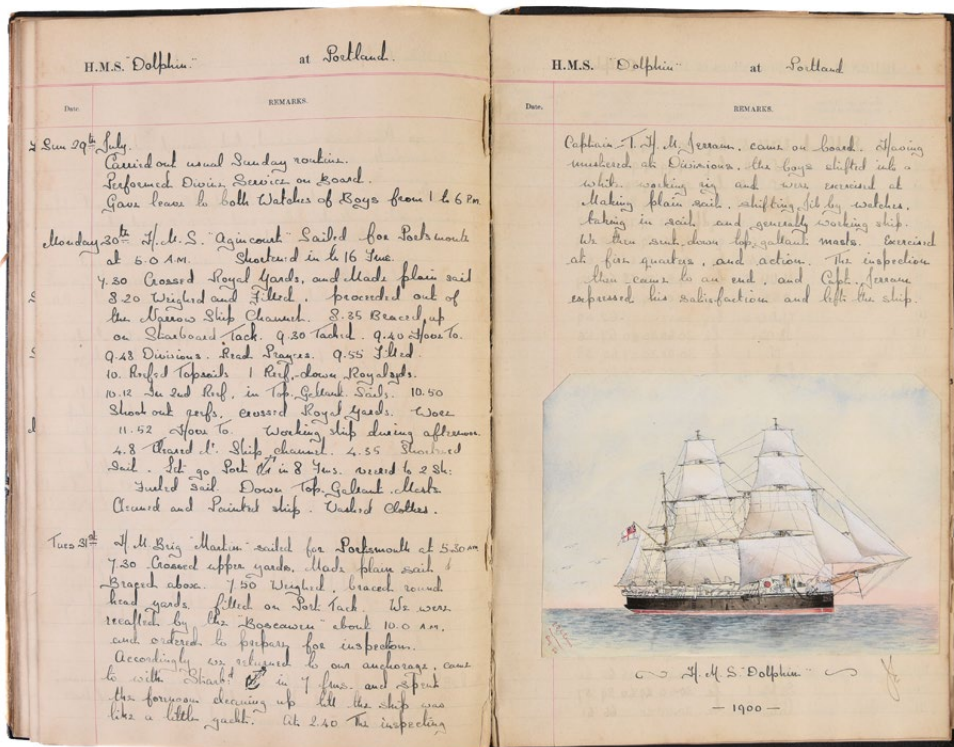 H.M.S. "Dolphin." at Portland.
Date. REMARKS.
Sun 29th July.
Carried out usual Sunday routine.
Performed Divine Service on Board.
Gave leave to both Watches of Boys from 1 to 6 P.M.
Monday 30th H.M.S. "Agincourt" Sailed for Portsmouth
at 5.0 A.M. Shortened in to 16 fms.
7.30 Crossed Royal Yards, and Made plain sail
8.20 Weighed and Filled, proceeded out of
the Narrow Ship Channel. 8.35 Braced up
on Starboard Tack. 9.30 Tacked. 9.40 Hove To.
9.48 Divisions. Read Prayers. 9.55 Filled.
10. Reefed Topsails 1 Reef, down Royal yds.
10.12 In 2nd Reef, in Top. Gallant Sails. 10.50
Shook out reefs, crossed Royal Yards. Wore
11.52 Hove To. Working ship during afternoon.
4.8 Cleared Ship channel. 4.35 Shortened
Sail. Let go Port in 8 fms. veered to 2 Sh:
Furled sail. Down Top. Gallant Masts
Cleaned and Painted ship. Washed Clothes.
Tues 31st H.M. Brig "Martin" sailed for Portsmouth at 5.30 AM
7.30 Crossed upper yards, Made plain sail
Braced above. 7.50 Weighed, braced round
head yards, filled on Port Tack. We were
recalled by the "Boscawen" about 10.0 A.M.
and ordered to prepare for inspection.
Accordingly we returned to our anchorage, came
to with Starbd in 7 fms. and spent
the forenoon cleaning up till the ship was
like a little yacht. At 2.40 The inspecting
H.M.S. "Dolphin" at Portland
Date. REMARKS.
Captain T. H. M. Jerram, came on board. Having
mustered at Divisions, the boys shifted into
white working rig and were exercised at
Making plain sail, shifting jib by watches,
taking in sail and generally working ship.
We then sent down top gallant masts. Exercised
at fire quarters, and action. The inspection
then came to an end, and Capt. Jerram
expressed his satisfaction and left the ship.
H.M.S "Dolphin"
— 1900 —